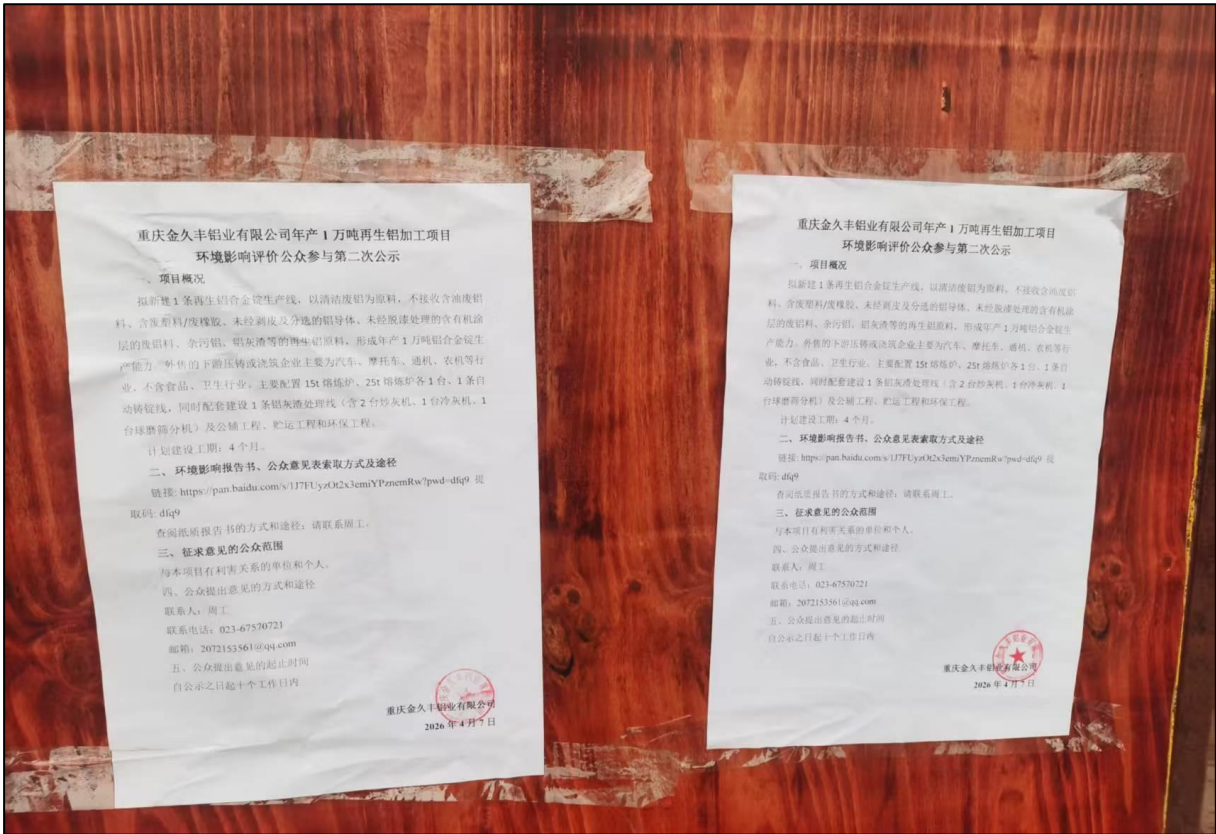 重庆金久丰铝业有限公司年产 1 万吨再生铝加工项目
环境影响评价公众参与第二次公示
一、项目概况
拟新建 1 条再生铝合金锭生产线，以清洁废铝为原料，不接收含油废铝
料、含废塑料/废橡胶、未经剥皮及分选的铝导体、未经脱漆处理的含有机涂
层的废铝料、杂污铝、铝灰渣等的再生铝原料，形成年产 1 万吨铝合金锭生
产能力，外售的下游压铸或浇筑企业主要为汽车、摩托车、通机、农机等行
业，不含食品、卫生行业。主要配置 15t 熔炼炉、25t 熔炼炉各 1 台、1 条自
动铸锭线，同时配套建设 1 条铝灰渣处理线（含 2 台炒灰机、1 台冷灰机、1
台球磨筛分机）及公辅工程、贮运工程和环保工程。
计划建设工期：4 个月。
二、环境影响报告书、公众意见表索取方式及途径
链接: https://pan.baidu.com/s/1J7FUyzOt2x3emiYPznemRw?pwd=dfq9 提
取码: dfq9
查阅纸质报告书的方式和途径：请联系周工。
三、征求意见的公众范围
与本项目有利害关系的单位和个人。
四、公众提出意见的方式和途径
联系人：周工
联系电话：023-67570721
邮箱：2072153561@qq.com
五、公众提出意见的起止时间
自公示之日起十个工作日内
重庆金久丰铝业有限公司
2026 年 4 月 7 日
重庆金久丰铝业有限公司年产 1 万吨再生铝加工项目
环境影响评价公众参与第二次公示
一、项目概况
拟新建 1 条再生铝合金锭生产线，以清洁废铝为原料，不接收含油废铝
料、含废塑料/废橡胶、未经剥皮及分选的铝导体、未经脱漆处理的含有机涂
层的废铝料、杂污铝、铝灰渣等的再生铝原料，形成年产 1 万吨铝合金锭生
产能力，外售的下游压铸或浇筑企业主要为汽车、摩托车、通机、农机等行
业，不含食品、卫生行业。主要配置 15t 熔炼炉、25t 熔炼炉各 1 台、1 条自
动铸锭线，同时配套建设 1 条铝灰渣处理线（含 2 台炒灰机、1 台冷灰机、1
台球磨筛分机）及公辅工程、贮运工程和环保工程。
计划建设工期：4 个月。
二、环境影响报告书、公众意见表索取方式及途径
链接: https://pan.baidu.com/s/1J7FUyzOt2x3emiYPznemRw?pwd=dfq9 提
取码: dfq9
查阅纸质报告书的方式和途径：请联系周工。
三、征求意见的公众范围
与本项目有利害关系的单位和个人。
四、公众提出意见的方式和途径
联系人：周工
联系电话：023-67570721
邮箱：2072153561@qq.com
五、公众提出意见的起止时间
自公示之日起十个工作日内
重庆金久丰铝业有限公司
2026 年 4 月 7 日